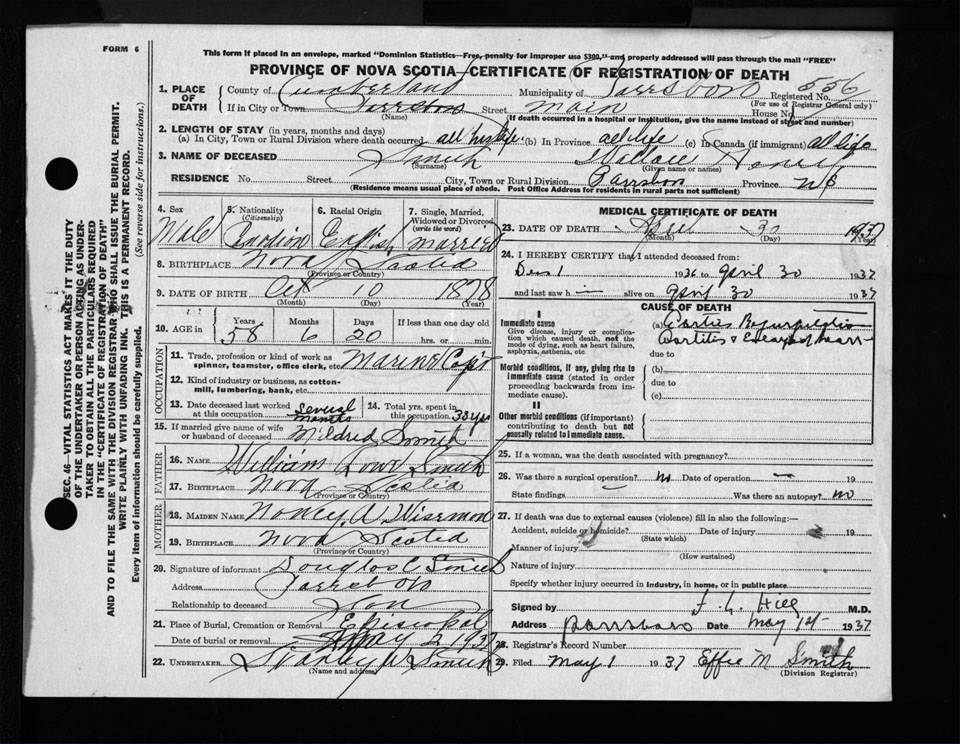 FORM 6
This form if placed in an envelope, marked "Dominion Statistics—Free, penalty for improper use $300," and properly addressed will pass through the mail "FREE"
PROVINCE OF NOVA SCOTIA—CERTIFICATE OF REGISTRATION OF DEATH
1. PLACE OF DEATH
County of Cumberland Municipality of Parrsboro Registered No. 556
(For use of Registrar General only)
If in City or Town Parrsboro Street Main House No.
(Name) (If death occurred in a hospital or institution, give the name instead of street and number)
2. LENGTH OF STAY (in years, months and days)
(a) In City, Town or Rural Division where death occurred all his life (b) In Province all life (c) In Canada (if immigrant) all life
3. NAME OF DECEASED Smith Wallace Henry
(Surname) (Given name or names)
RESIDENCE No. Street City, Town or Rural Division Parrsboro Province NS
(Residence means usual place of abode. Post Office Address for residents in rural parts not sufficient)
SEC. 46—VITAL STATISTICS ACT MAKES IT THE DUTY
OF THE UNDERTAKER OR PERSON ACTING AS UNDER-
TAKER TO OBTAIN ALL THE PARTICULARS REQUIRED
IN THE "CERTIFICATE OF REGISTRATION OF DEATH"
AND TO FILE THE SAME WITH THE DIVISION REGISTRAR WHO SHALL ISSUE THE BURIAL PERMIT.
WRITE PLAINLY WITH UNFADING INK. THIS IS A PERMANENT RECORD.
Every item of information should be carefully supplied. (See reverse side for instructions.)
4. Sex 5. Nationality (Citizenship) 6. Racial Origin 7. Single, Married, Widowed or Divorced (write the word)
Male Canadian English married
8. BIRTHPLACE Nova Scotia
(Province or Country)
9. DATE OF BIRTH Oct 10 1878
(Month) (Day) (Year)
10. AGE in Years Months Days If less than one day old
58 6 20 hrs. or min.
OCCUPATION
11. Trade, profession or kind of work as spinner, teamster, office clerk, etc. Marine Capt
12. Kind of industry or business, as cotton-mill, lumbering, bank, etc.
13. Date deceased last worked at this occupation Several months 14. Total yrs. spent in this occupation 35 yrs
15. If married give name of wife or husband of deceased Mildred Smith
FATHER
16. NAME William Smith
17. BIRTHPLACE Nova Scotia
(Province or Country)
MOTHER
18. MAIDEN NAME Nancy A Wisemon
19. BIRTHPLACE Nova Scotia
(Province or Country)
20. Signature of informant Douglas C Smith
Address Parrsboro
Relationship to deceased Son
21. Place of Burial, Cremation or Removal Episcopal
Date of burial or removal May 2 1937
22. UNDERTAKER Stanley A Smith
(Name and address)
MEDICAL CERTIFICATE OF DEATH
23. DATE OF DEATH April 30 1937
(Month) (Day) (Year)
24. I HEREBY CERTIFY that I attended deceased from:
Dec 1 1936 to April 30 1937
and last saw h alive on April 30 1937
CAUSE OF DEATH
I
Immediate cause
Give disease, injury or complication which caused death, not the mode of dying, such as heart failure, asphyxia, asthenia, etc
(a)
due to
Morbid conditions, if any, giving rise to immediate cause (stated in order proceeding backwards from immediate cause).
(b)
due to
(c)
II
Other morbid conditions (if important) contributing to death but not causally related to immediate cause.
25. If a woman, was the death associated with pregnancy?
26. Was there a surgical operation? no Date of operation — 19
State findings Was there an autopsy? no
27. If death was due to external causes (violence) fill in also the following:—
Accident, suicide or homicide? Date of injury 19
(State which)
Manner of injury
(How sustained)
Nature of injury
Specify whether injury occurred in industry, in home, or in public place.
Signed by F. L. Hill M.D.
Address Parrsboro Date May 1st 1937
28. Registrar's Record Number
29. Filed May 1 1937 Effie M Smith
(Division Registrar)